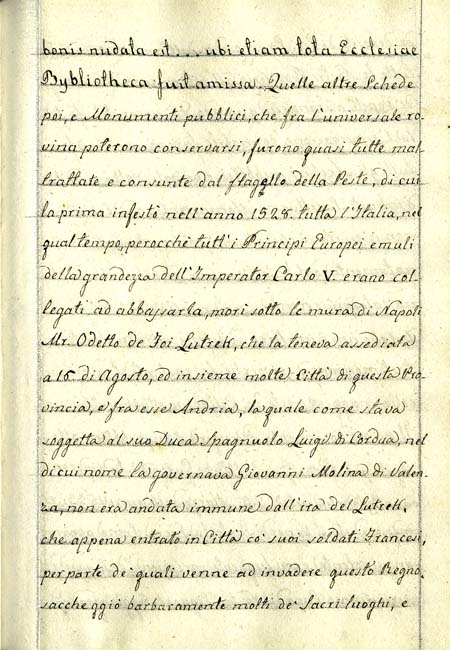 bonis nudata est... ubi etiam tota Ecclesiae
Bybliotheca fuit amissa. Quelle altre Schede
poi, e Monumenti pubblici, che fra l'universale ro-
vina poterono conservarsi, furono quasi tutte mal-
trattate e consunte dal flagello della Peste, di cui
la prima infestò nell'anno 1528. tutta l'Italia, nel
qual tempo, perocchè tutt'i Principi Europei emuli
della grandezza dell'Imperator Carlo V. erano col-
legati ad abbassarla, morì sotto le mura di Napoli
Mr. Odetto de Foi Lutrek, che la teneva assediata
a 15 di Agosto, ed insieme molte Città di questa Pro-
vincia, e fra esse Andria, la quale come stava
soggetta al suo Duca Spagnuolo Luigi di Cordua, nel
di cui nome la governava Giovanni Molina di Valen-
za, non era andata immune dall'ira del Lutrek,
che appena entrato in Città co' suoi soldati Francesi,
per parte de' quali venne ad invadere questo Regno,
saccheggiò barbaramente molti de' Sacri luoghi, e